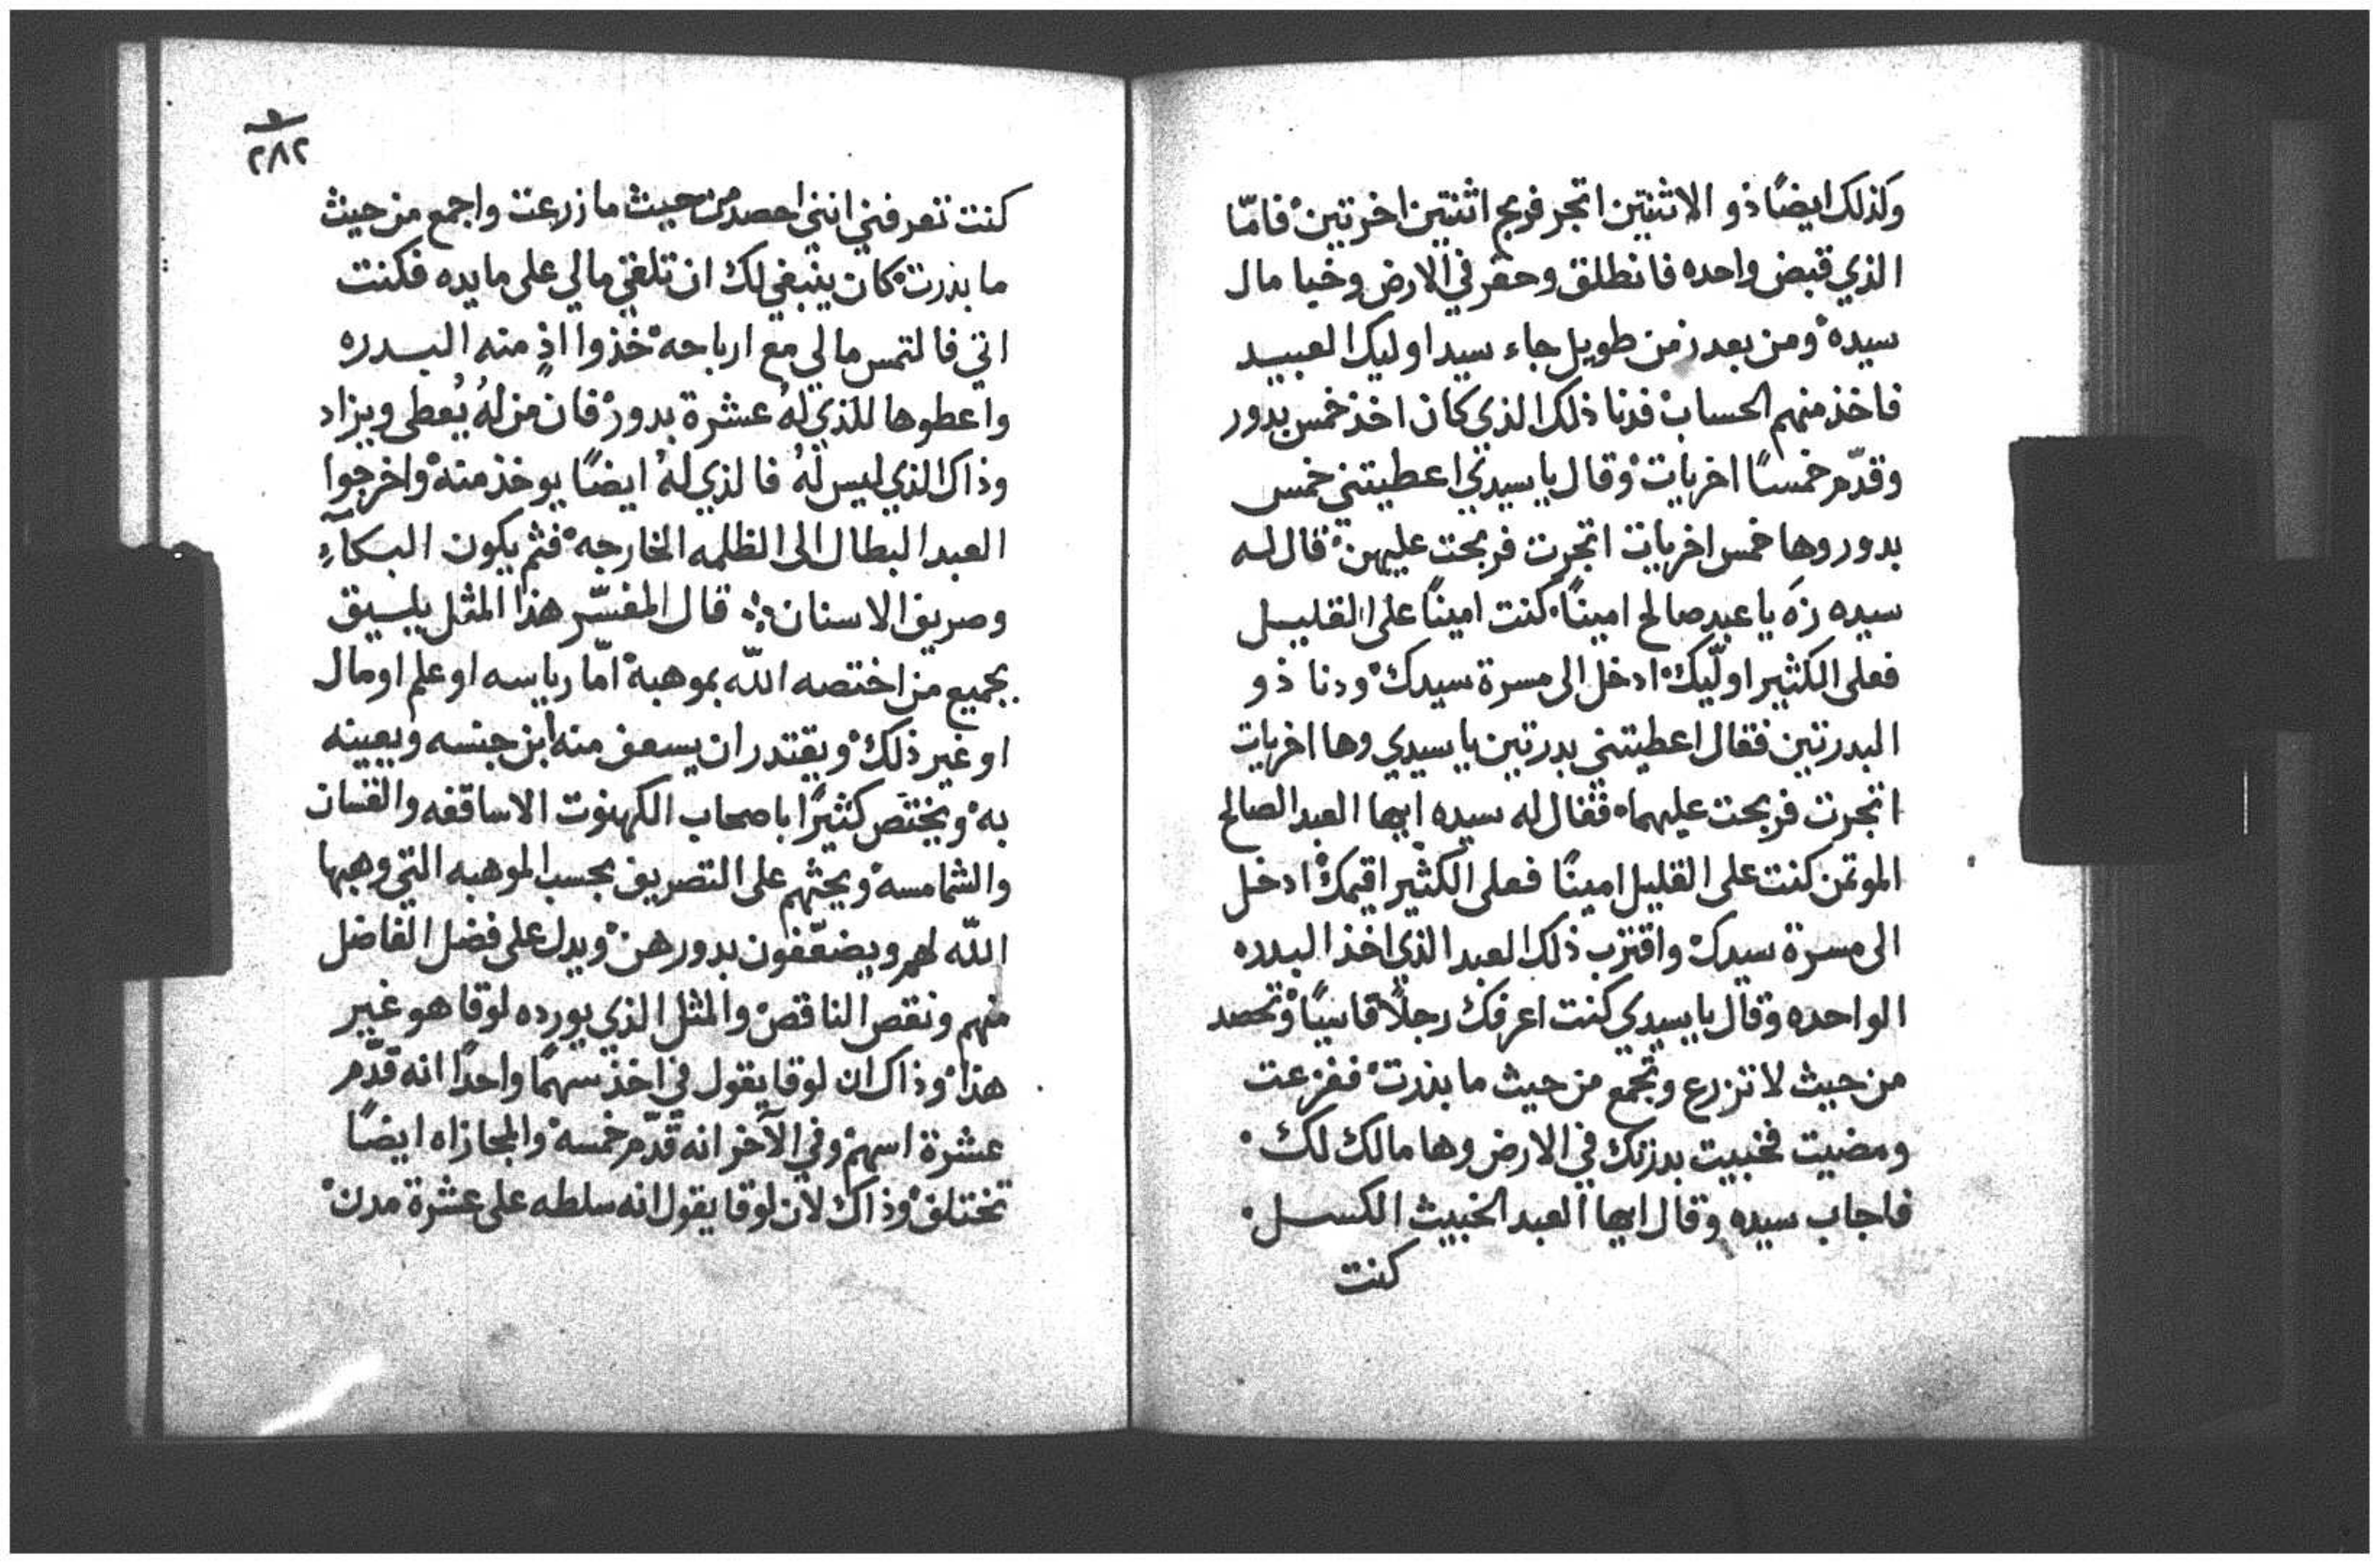 وكذلك ايضًا ذو الاثنتين اتجر فربح اثنتين اخرتين فامّا
الذي قبض واحده فانطلق وحفر في الارض وخبا مال
سيده ومن بعد زمن طويل جاء سيد اوليك العبيد
فاخذ منهم الحساب فدنا ذلك الذي كان اخذ خمس بدور
وقدّم خمسًا اخريات وقال يا سيدي اعطيتني خمس
بدور وها خمس اخريات اتجرت فربحت عليهن قال له
سيده زه يا عبد صالح امينًا كنت امينًا على القليل
فعلى الكثير اولّيك ادخل الى مسرة سيدك ودنا ذو
البدرتين فقال اعطيتني بدرتين يا سيدي وها اخريات
اتجرت فربحت عليهما فقال له سيده ايها العبد الصالح
الموتمن كنت على القليل امينًا فعلى الكثير اقيمك ادخل
الى مسرة سيدك واقترب ذلك العبد الذي اخذ البدره
الواحده وقال يا سيدي كنت اعرفك رجلًا قاسيًا وتحصد
من حيث لا تزرع وتجمع من حيث ما بذرت ففزعت
ومضيت فخبيت بدرتك في الارض وها مالك لك
فاجاب سيده وقال ايها العبد الخبيث الكسل
كنت
٢٨٢
كنت تعرفني انني احصد من حيث ما زرعت واجمع من حيث
ما بذرت كان ينبغي لك ان تلقي مالي على مايده فكنت
اتي فالتمس مالي مع ارباحه خذوا اذٍ منه البدره
واعطوها للذي لهُ عشرة بدور فان من لهُ يُعطى ويزاد
وذاك الذي ليس لهُ فالذي لهُ ايضًا يوخذ منه واخرجوا
العبد البطال الى الظلمه الخارجه فثم يكون البكآءِ
وصريف الاسنان قال المفسّر هذا المثل يليق
بجميع من اختصه الله بموهبة امّا رياسه او علم او مال
او غير ذلك ويقتدر ان يسعف منه ابن جنسه ويعينه
به ويختص كثيرًا باصحاب الكهنوت الاساقفه والقسان
والشمامسه ويحثهم على التصريف بحسب الموهبه التي وهبها
الله لهم ويضعّفون بدورهن ويدل على فضل الفاضل
منهم ونقص الناقص والمثل الذي يورده لوقا هو غير
هذا وذاك ان لوقا يقول في اخذ سهمًا واحدًا انه قدّم
عشرة اسهم وفي الآخر انه قدّم خمسة والمجازاه ايضًا
تختلف وذاك لان لوقا يقول انه سلطه على عشرة مدن